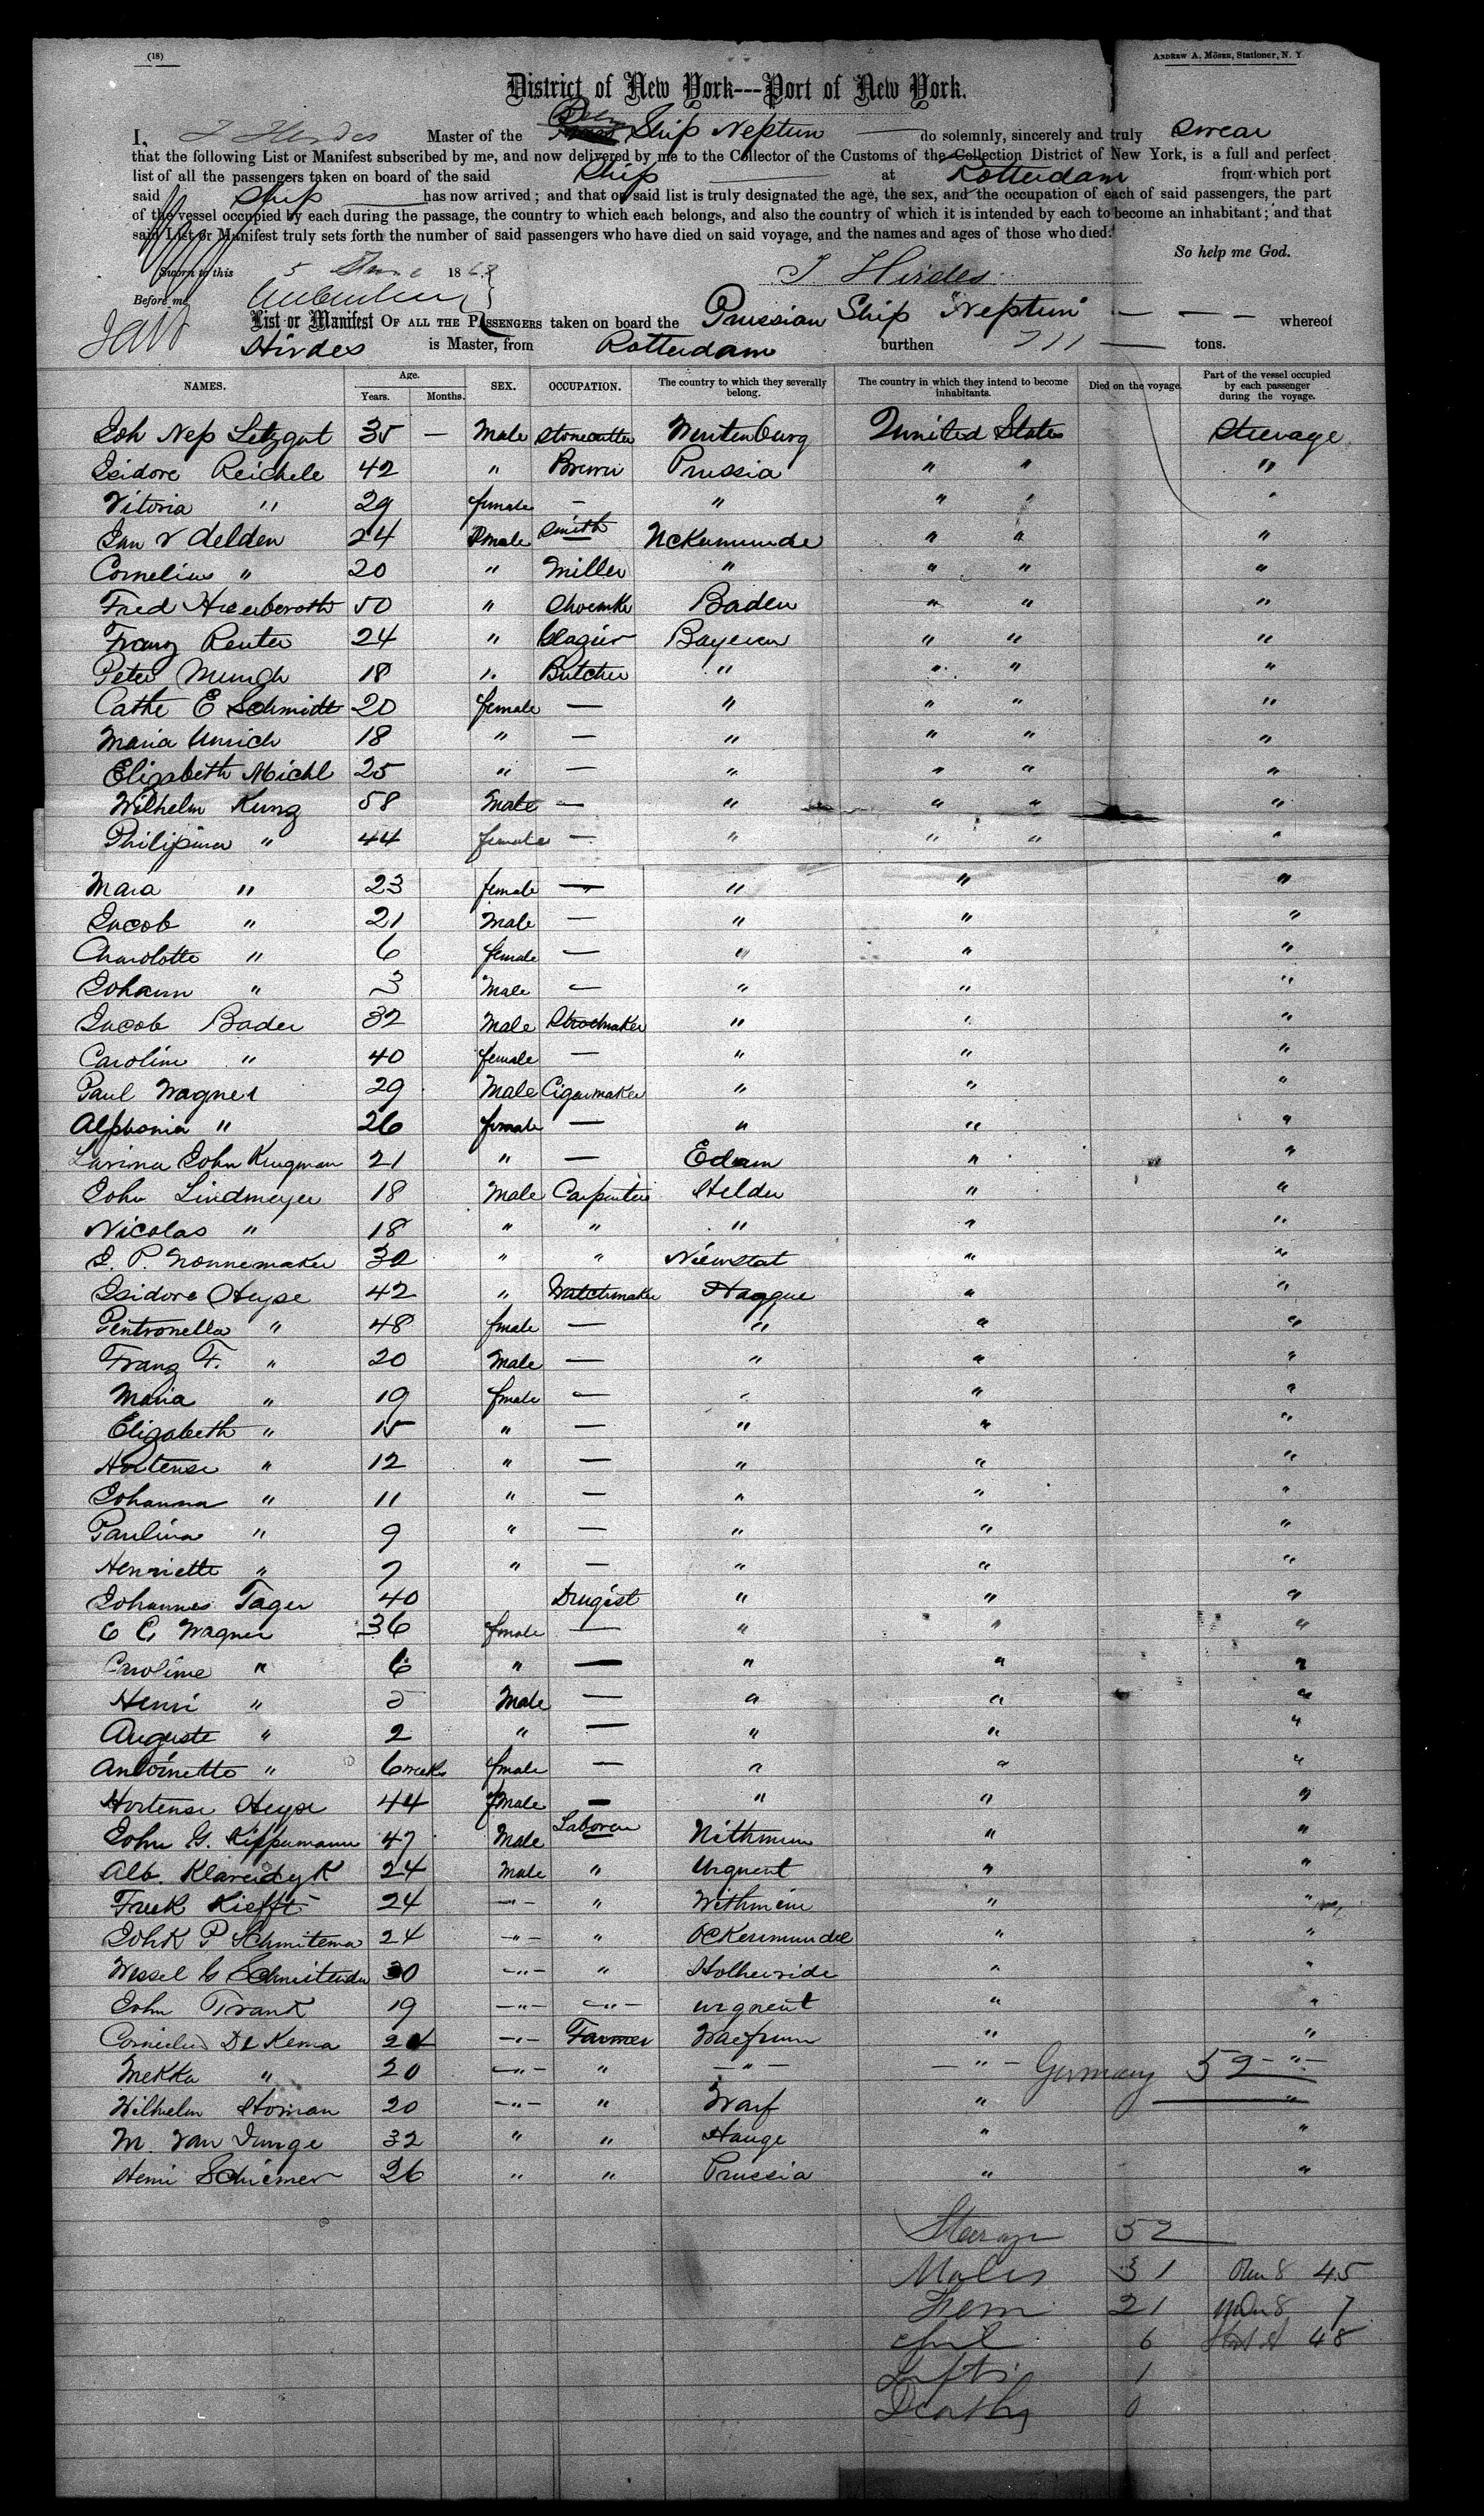 (18)
ANDREW A. MÖSER, Stationer, N. Y.
District of New York---Port of New York.
I, J Hirdes Master of the Ship Neptun — do solemnly, sincerely and truly swear
that the following List or Manifest subscribed by me, and now delivered by me to the Collector of the Customs of the Collection District of New York, is a full and perfect
list of all the passengers taken on board of the said Ship at Rotterdam from which port
said Ship has now arrived; and that on said list is truly designated the age, the sex, and the occupation of each of said passengers, the part
of the vessel occupied by each during the passage, the country to which each belongs, and also the country of which it is intended by each to become an inhabitant; and that
said List or Manifest truly sets forth the number of said passengers who have died on said voyage, and the names and ages of those who died.
So help me God.
Sworn to this 5 June 1868
J Hirdes
Before me
List or Manifest OF ALL THE PASSENGERS taken on board the Prussian Ship "Neptun" — — — whereof
Hirdes is Master, from Rotterdam burthen 711 — tons.
NAMES. Age. Years. Months. SEX. OCCUPATION. The country to which they severally belong. The country in which they intend to become inhabitants. Died on the voyage. Part of the vessel occupied by each passenger during the voyage.
Joh Nep Letzgut 35 — Male Stonecutter Wurtenburg Tunited States Steerage
Isidore Reichele 42 " Brewer Prussia " " "
Vitoria " 29 female — " " " "
Jan v Delden 24 Male Smith Uckermunde " " "
Cornelius " 20 " Miller " " " "
Fred 50 " Baden " " "
Franz Reuter 24 " Glazier Bayern " " "
Peter Mungh 18 " Butcher " " " "
Cathe E Schmidt 20 female — " " " "
Maria Unrich 18 " — " " " "
Elizabeth Michl 25 " — " " " "
Wilhelm Kunz 58 Male — " " " "
Philipina " 44 female — " " " "
Mara " 23 female — " " "
Jacob " 21 Male — " " "
Charolotte " 6 female — " " "
Johann " 3 Male — " " "
Jacob Bader 32 Male " " "
Caroline " 40 female — " " "
Paul Wagner 29 Male Cigarmaker " " "
Alphonia " 26 female — " " "
Lavina John Krugman 21 " — Edam " "
John Lindmeyer 18 Male Carpenter Helder " "
Nicolas " 18 " " " " "
J. P. Nonnemaker 30 " " Nieustat " "
Isidore Heyse 42 " Watchmaker Hagque " "
Pentronella " 48 female — " " "
Franz F. " 20 Male — " " "
Maria " 19 female — " " "
Elizabeth " 15 " — " " "
Hortense " 12 " — " " "
Johanna " 11 " — " " "
Paulina " 9 " — " " "
Henriette " 7 " — " " "
Johannes Tager 40 Drugist " " "
C C Wagner 36 female — " " "
Caroline " 6 " — " " "
Henri " 5 Male — " " "
Auguste " 2 " — " " "
Antoinette " 6 weeks female — " " "
Hortense Heyse 44 female — " " "
John G. Kippumann 47 Male Laborer Nithmum " "
Alb. Klareidyk 24 Male " Urquent " "
Freek Kiefft 24 -"- " Withmein " "
John P Schmitema 24 -"- " " "
Wessel G 30 -"- " " "
John Frank 19 -"- -"- urquent " "
Cornelis De Kema 24 -"- Farmer " "
Mekka " 20 -"- " -"- -"- -"-
Germany 52
Wilhelm Homan 20 -"- " Warf " "
M. van Junge 32 " " Hauge " "
Henri Schiemer 26 " " Prussia " "
Steerage 52
Males 31 Over 8 45
Fem 21 Under 8 7
Chil 6 48
Infts 1
Deaths 0